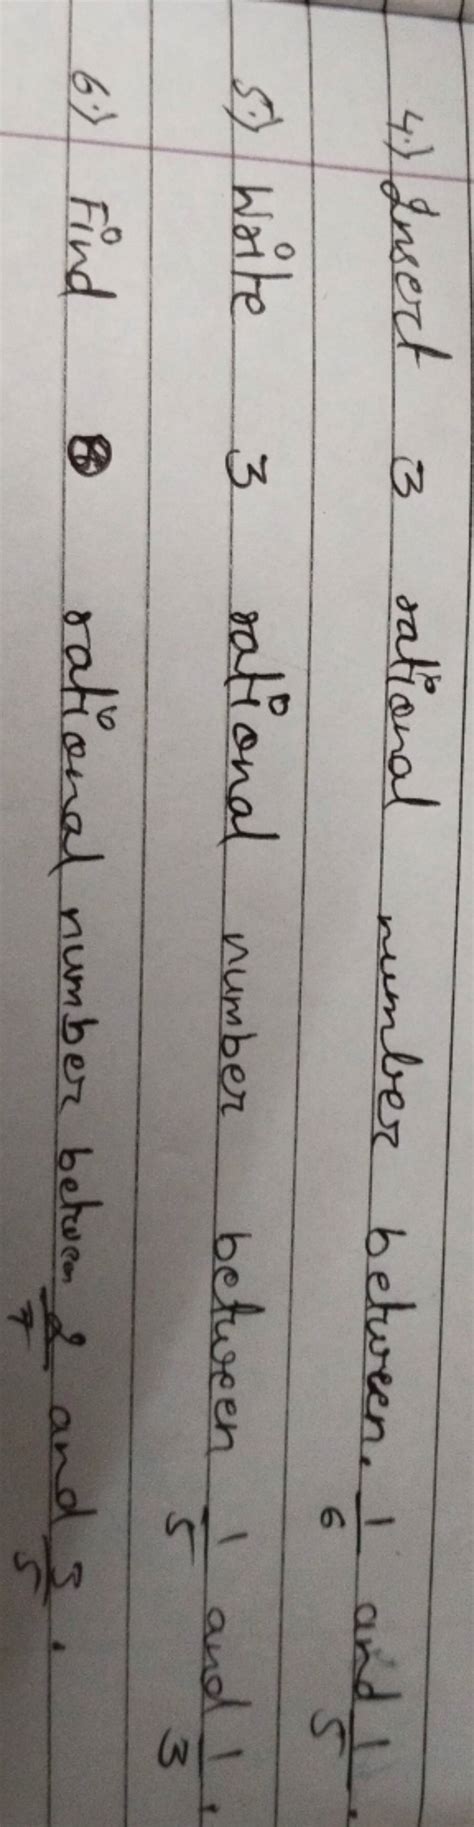 4.) Insert 3 rational number between. 1/6 and 1/5.
5.) Write 3 rational number between 1/5 and 1/3.
6.) Find rational number between 2/7 and 3/5.